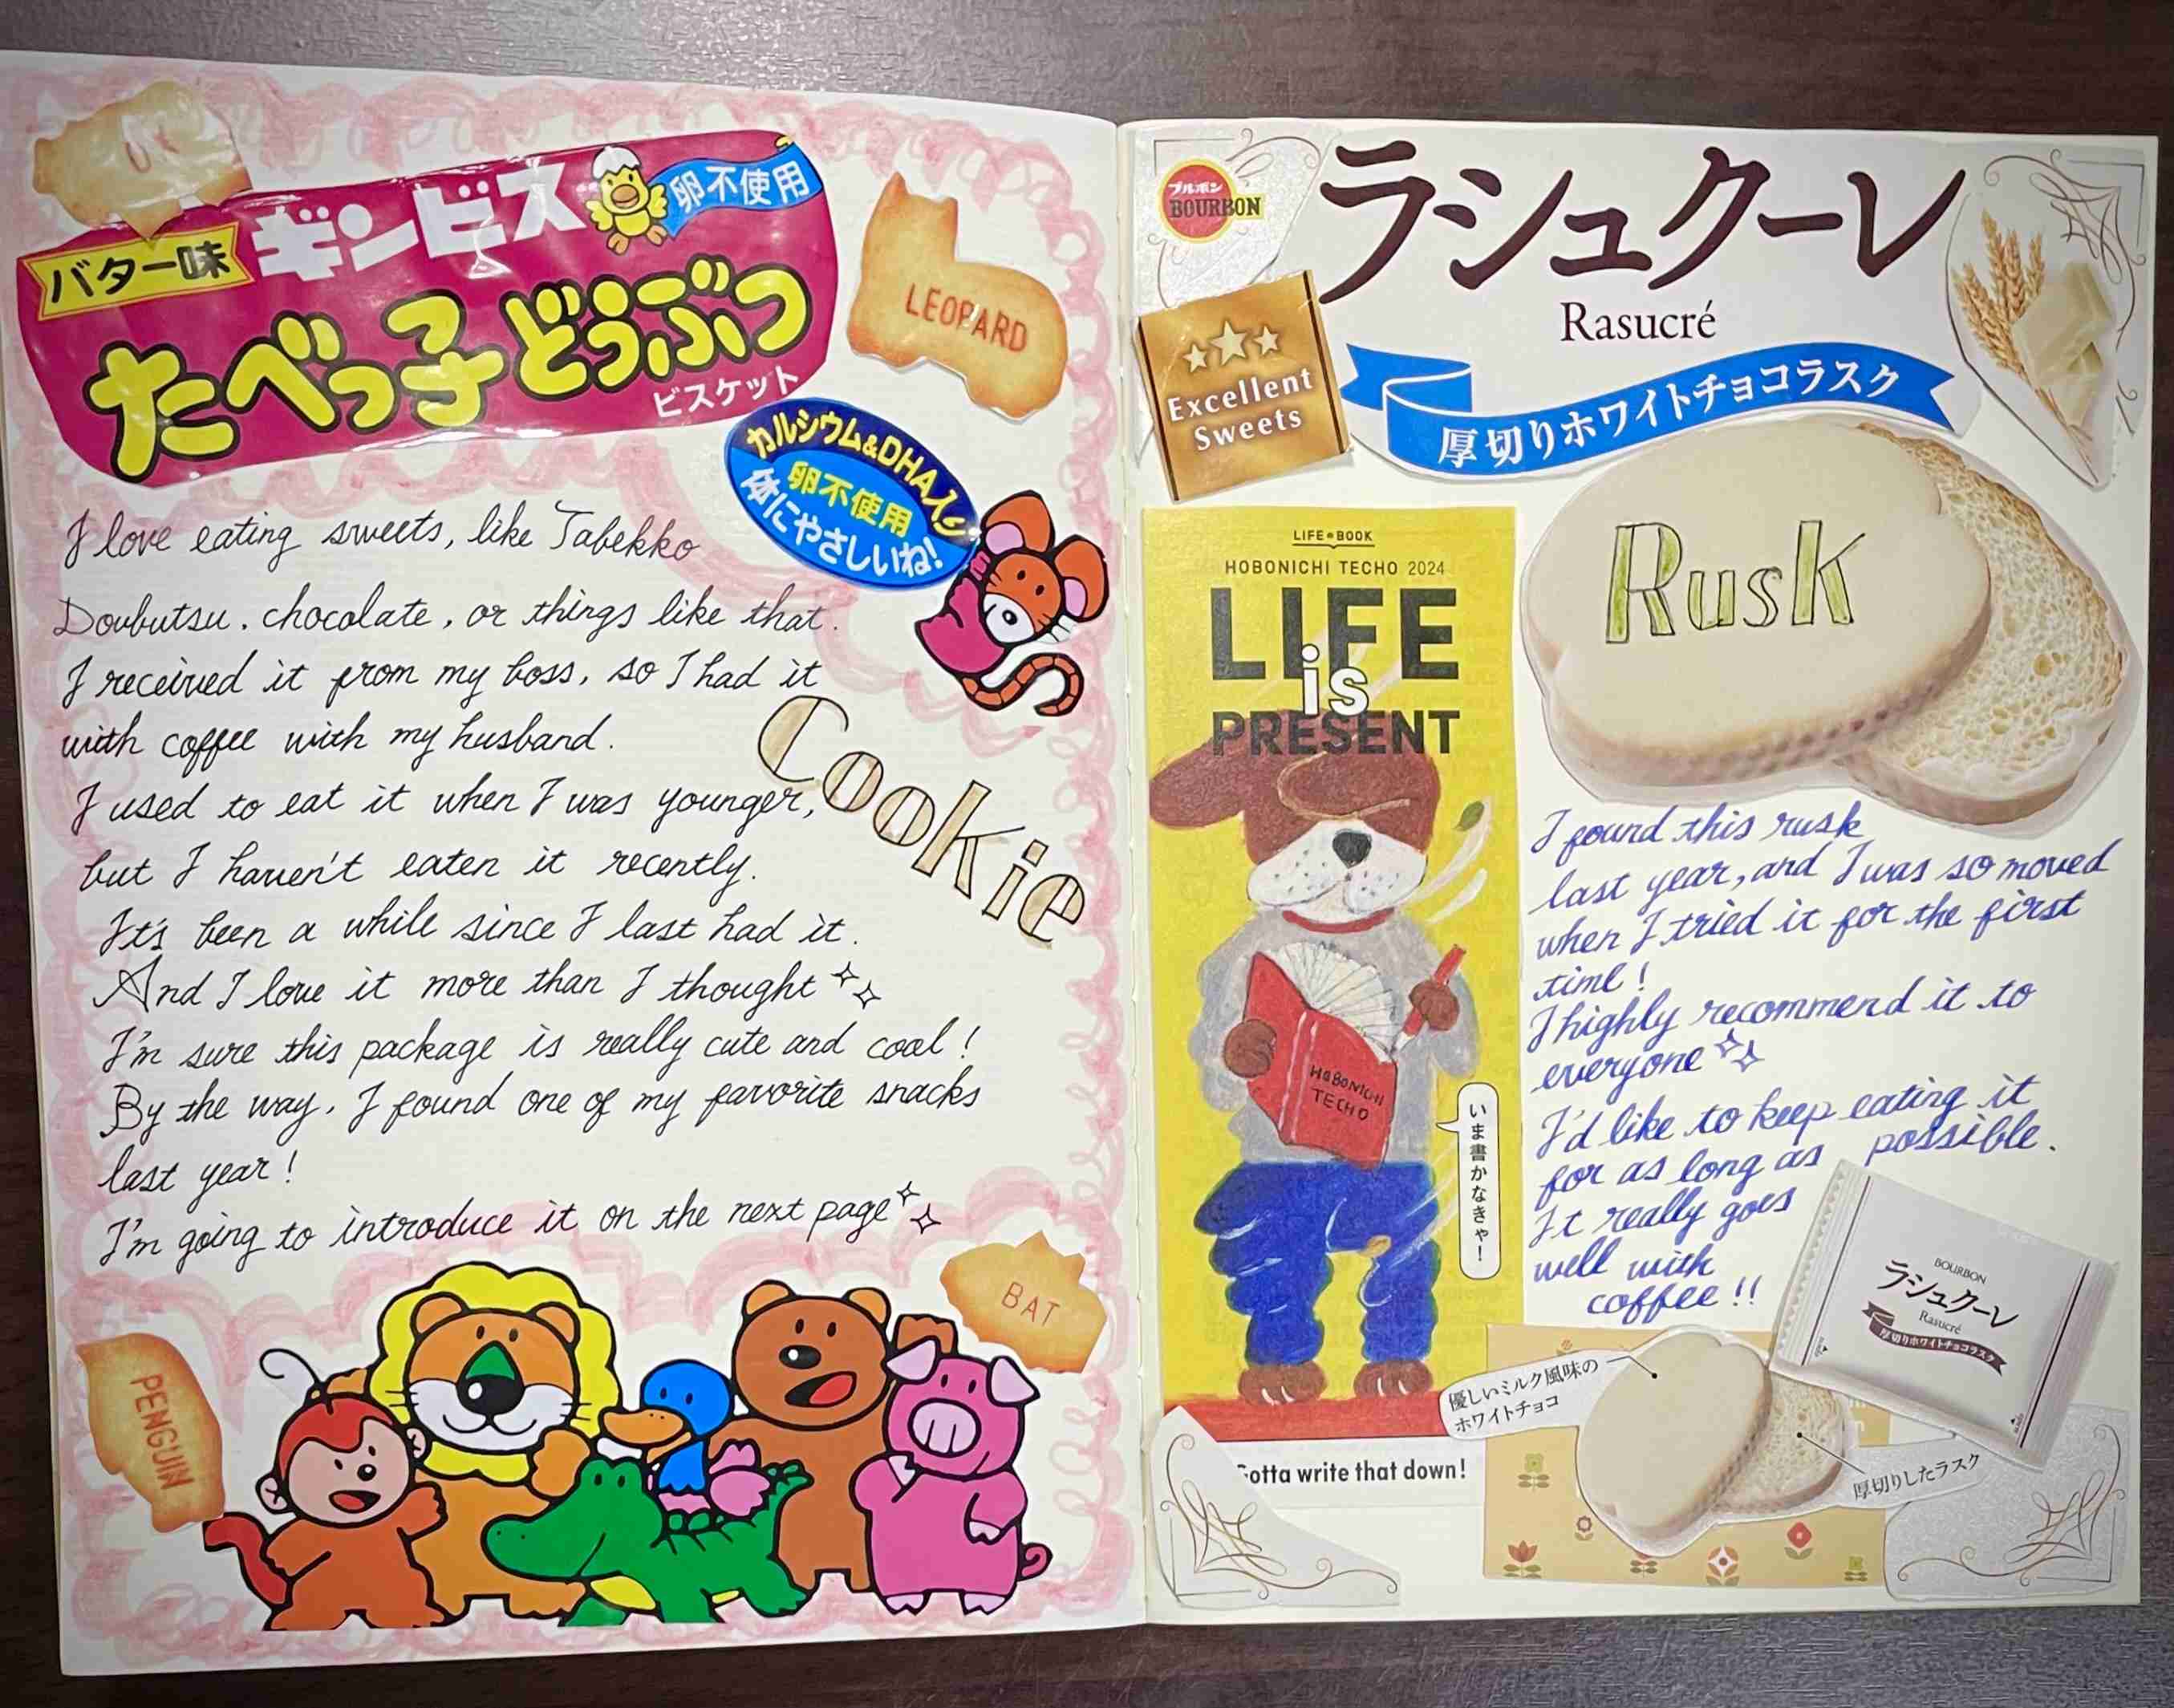 バター味
ギンビス
卵不使用
たべっ子どうぶつ
ビスケット
LEOPARD
カルシウム&DHA入り
卵不使用
体にやさしいね!
I love eating sweets, like Tabekko
Doubutsu, chocolate, or things like that.
I received it from my boss, so I had it
with coffee with my husband.
I used to eat it when I was younger,
but I haven't eaten it recently.
It's been a while since I last had it.
And I love it more than I thought
I'm sure this package is really cute and cool!
By the way, I found one of my favorite snacks
last year!
I'm going to introduce it on the next page
Cookie
BAT
PENGUIN
ブルボン
BOURBON
ラシュクーレ
Rasucré
Excellent
Sweets
厚切りホワイトチョコラスク
Rusk
LIFE BOOK
HOBONICHI TECHO 2024
LIFE
is
PRESENT
HOBONICHI
TECHO
いま書かなきゃ!
Gotta write that down!
I found this rusk
last year, and I was so moved
when I tried it for the first
time!
I highly recommend it to
everyone
I'd like to keep eating it
for as long as possible.
It really goes
well with
coffee!!
BOURBON
ラシュクーレ
Rasucré
厚切りホワイトチョコラスク
優しいミルク風味の
ホワイトチョコ
厚切りしたラスク